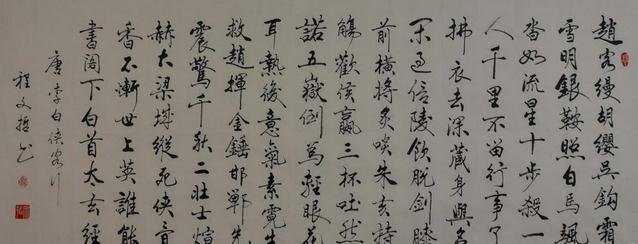 趙客缦胡纓吳鉤霜
雪明銀鞍照白馬飒
沓如流星十步殺一
人千里不留行事了
拂衣去深藏身與名
閑過信陵飲脫劍膝
前橫將炙啖朱亥持
觴勸侯嬴三杯吐然
諾五嶽倒為輕眼花
耳熱後意氣素霓生
救趙揮金錘邯鄲先
震驚千秋二壯士煊
赫大梁城縱死俠骨
香不慚世上英誰能
書閣下白首太玄經
唐李白俠客行
程文 书